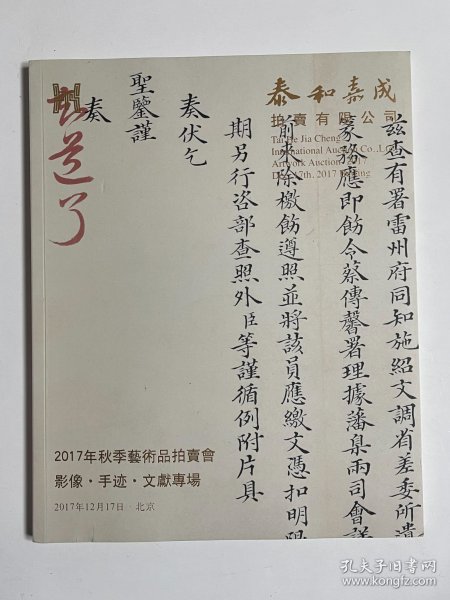 泰和嘉成
拍賣有限公司
Tai He Jia Cheng
International Auction Co., Ltd
Artwork Auction 2017
Dec 17th, 2017 Beijing
茲查有署雷州府同知施紹文調省差委所遺
篆務應即飭令蔡傳馨署理據藩臬兩司會詳
前來除檄飭遵照並將該員應繳文憑扣明限
期另行咨部查照外臣等謹循例附片具
奏伏乞
聖鑒謹
奏
知道了
2017年秋季藝術品拍賣會
影像·手迹·文獻專場
2017年12月17日·北京
孔夫子旧书网
www.kongfz.com